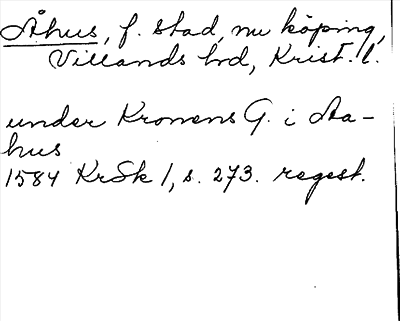 Åhus, f. stad, nu köping,
Villands hd, Krist. l.
under Kronens G. i Aa-
hus
1584 KrSk 1, s. 273. regest.